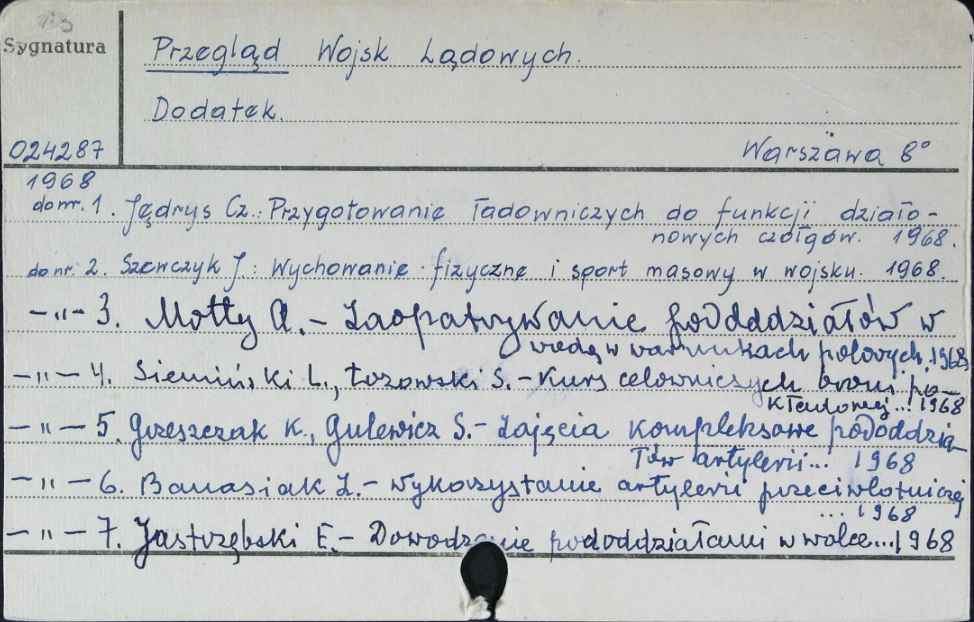 Sygnatura
Przegląd Wojsk Lądowych.
Dodatek.
024287
Warszawa 8°
1968
do nr. 1. Jędrys Cz.: Przygotowanie ładowniczych do funkcji działo-
nowych czołgów. 1968.
do nr. 2. Szewczyk J.: Wychowanie fizyczne i sport masowy w wojsku. 1968.
-"- 3. Motty A. - Zaopatrywanie pododdziałów w
wodę w warunkach polowych. 1968
-"- 4. Siemiński L., Łozowski S. - Kurs celowniczych broni po-
kładowej... 1968
-"- 5. Grzeszczak K., Gulewicz S. - Zajęcia kompleksowe pododdzia
łów artylerii... 1968
-"- 6. Banasiak Z. - Wykorzystanie artylerii przeciwlotniczej
... 1968
-"- 7. Jastrzębski E. - Dowodzenie pododdziałami w walce... 1968